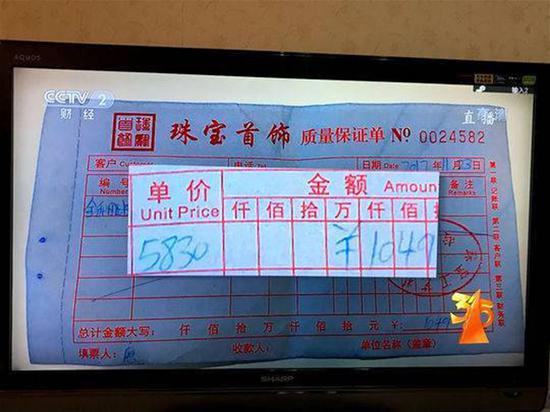 AQUOS
CCTV 2
财经
输入2
直播
珠宝首饰 质量保证单 No 0024582
客户 电话 日期 Date 2017 11 23
编号 备注
Number Remarks
单价 金额 Amoun
Unit Price 仟 佰 拾 万 仟 佰
5830 ¥ 1049
第一联 记账联 第二联 客户联 第三联 财务联
总计金额大写： 仟 佰 拾 万 仟 佰 拾 元 ¥：
填票人： 收款人： 单位名称（盖章）
315
SHARP